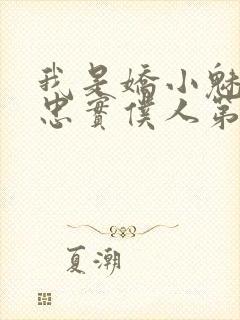 我是嬌小魅
忠實僕人第
夏潮